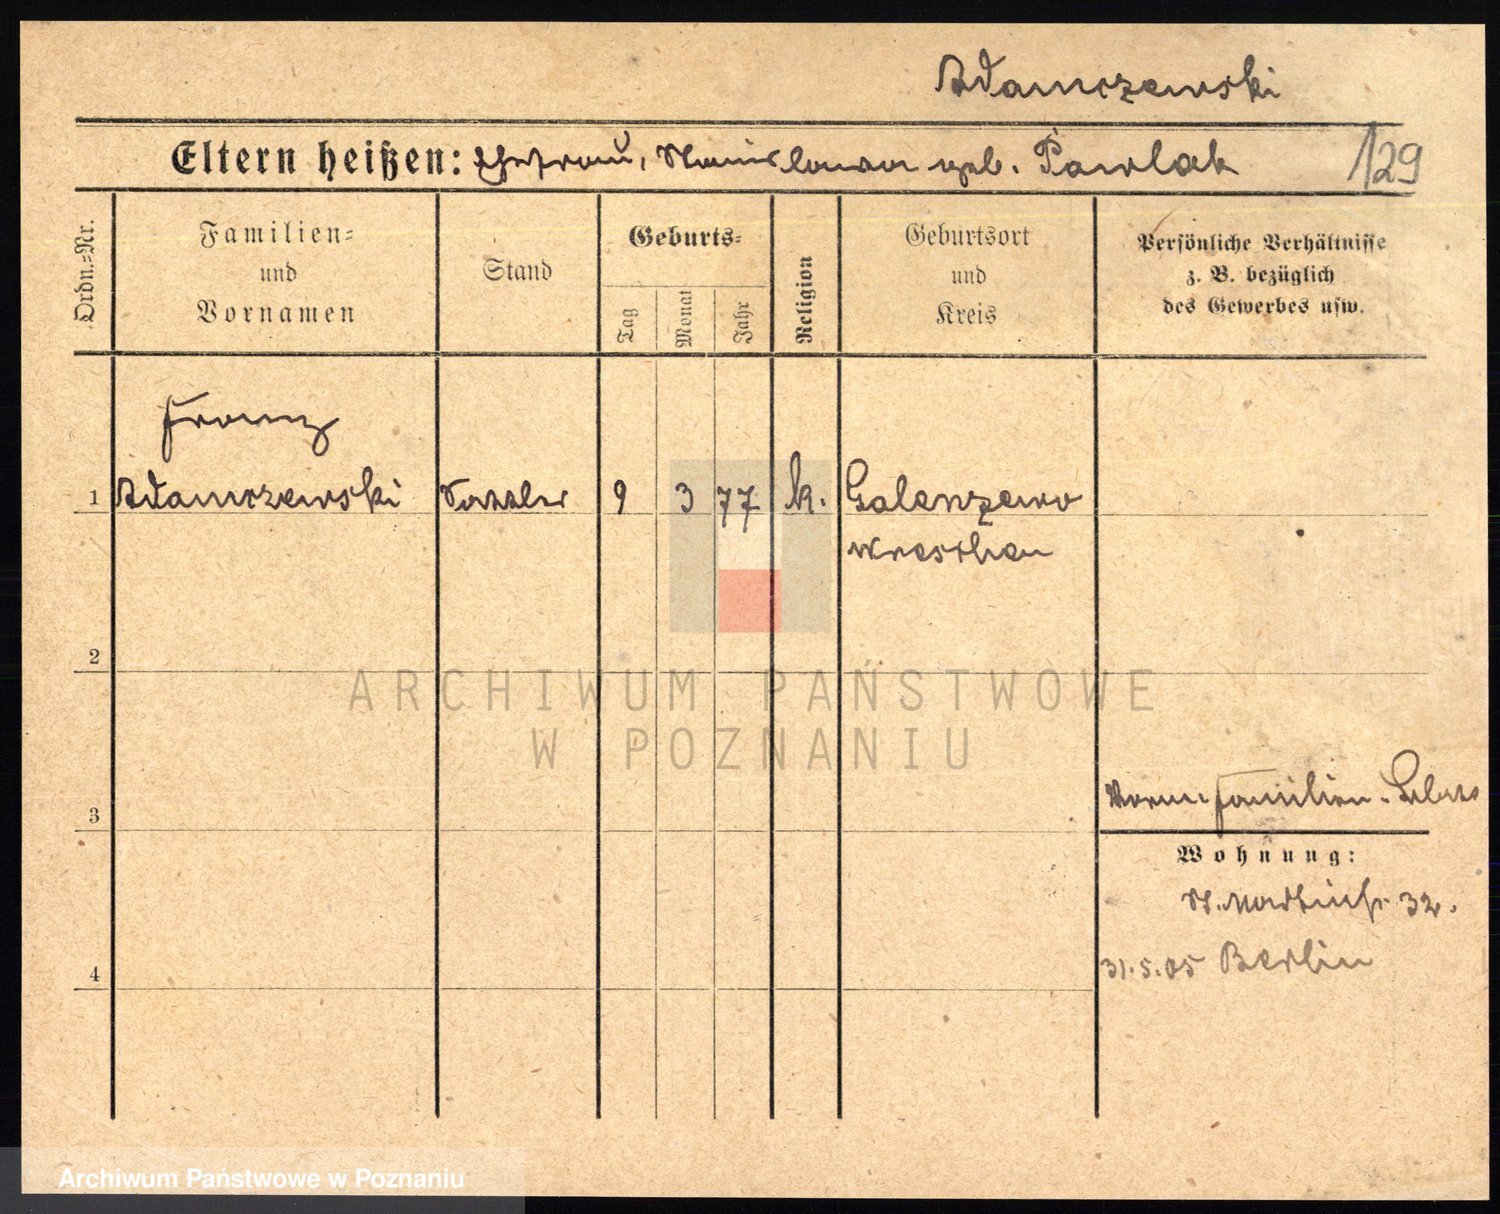 Adamczewski
Eltern heißen: Ehefrau, Stanislawa geb. Pawlak
129
Ordn.=Nr.
Familien=
und
Vornamen
Stand
Geburts=
Tag
Monat
Jahr
Religion
Geburtsort
und
Kreis
Persönliche Verhältnisse
z. B. bezüglich
des Gewerbes usw.
Franz
1 Adamczewski Sattler 9 3 77 k. Galenzewo
Wreschen
2
ARCHIWUM PAŃSTWOWE
W POZNANIU
3
Familien-
Wohnung:
St. Martinstr. 32.
4
31.5.05 Berlin
Archiwum Państwowe w Poznaniu